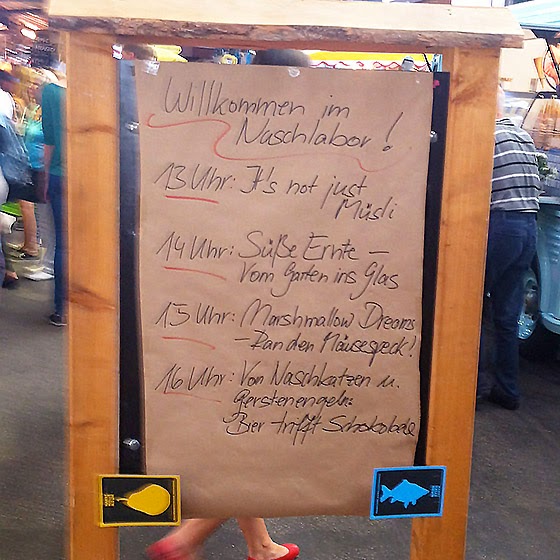 Willkommen im
Naschlabor!
13 Uhr: It's not just
Müsli
14 Uhr: Süße Ernte –
Vom Garten ins Glas
15 Uhr: Marshmallow Dreams
– Ran den Mäusespeck!
16 Uhr: Von Naschkatzen u.
Gerstenengeln:
Bier trifft Schokolade